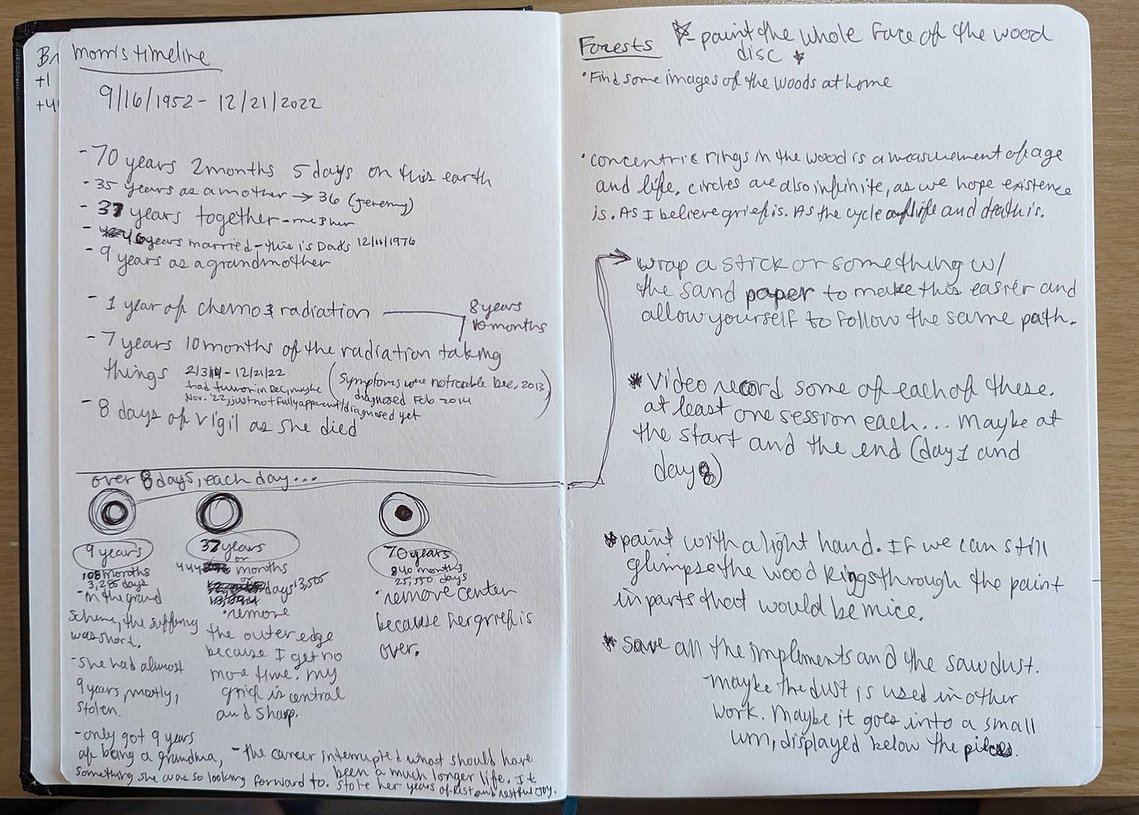 Br
+1
+4
mom's timeline
9/16/1952 - 12/21/2022
- 70 years 2 months 5 days on this earth
- 35 years as a mother → 36 (Jeremy)
- 37 years together - me & her
- 46 years married - this is Dad's 12/11/1976
- 9 years as a grandmother
- 1 year of chemo & radiation
8 years
10 months
- 7 years 10 months of the radiation taking
things
2/3/14 - 12/21/22
had tumor in Dec, maybe
Nov. '22, just not fully apparent/diagnosed yet
(Symptoms were noticeable Dec, 2013
diagnosed Feb 2014)
- 8 days of vigil as she died
over 8 days, each day...
9 years
108 months
3,285 days
- in the grand
scheme, the suffering
was short.
- she had almost
9 years, mostly,
stolen.
- only got 9 years
of being a grandma,
something she was so looking forward to.
37 years
or
444 months
or
days 13,505
• remove
the outer edge
because I get no
more time. my
grief is central
and sharp.
70 years
840 months
25,550 days
• remove center
because her grief is
over.
- the cancer interrupted what should have
been a much longer life. It
stole her years of rest and restful joy.
Forests
☆ - paint the whole face of the wood
disc ☆
• Find some images of the woods at home
• concentric rings in the wood is a measurement of age
and life. circles are also infinite, as we hope existence
is. As I believe grief is. As the cycle of life and death is.
wrap a stick or something w/
the sand paper to make this easier and
allow yourself to follow the same path.
* video record some of each of these.
at least one session each... Maybe at
the start and the end (day 1 and
day 8)
* paint with a light hand. If we can still
glimpse the wood rings through the paint
in parts that would be nice.
* save all the impliments and the sawdust.
- maybe the dust is used in other
work. Maybe it goes into a small
urn, displayed below the pieces.